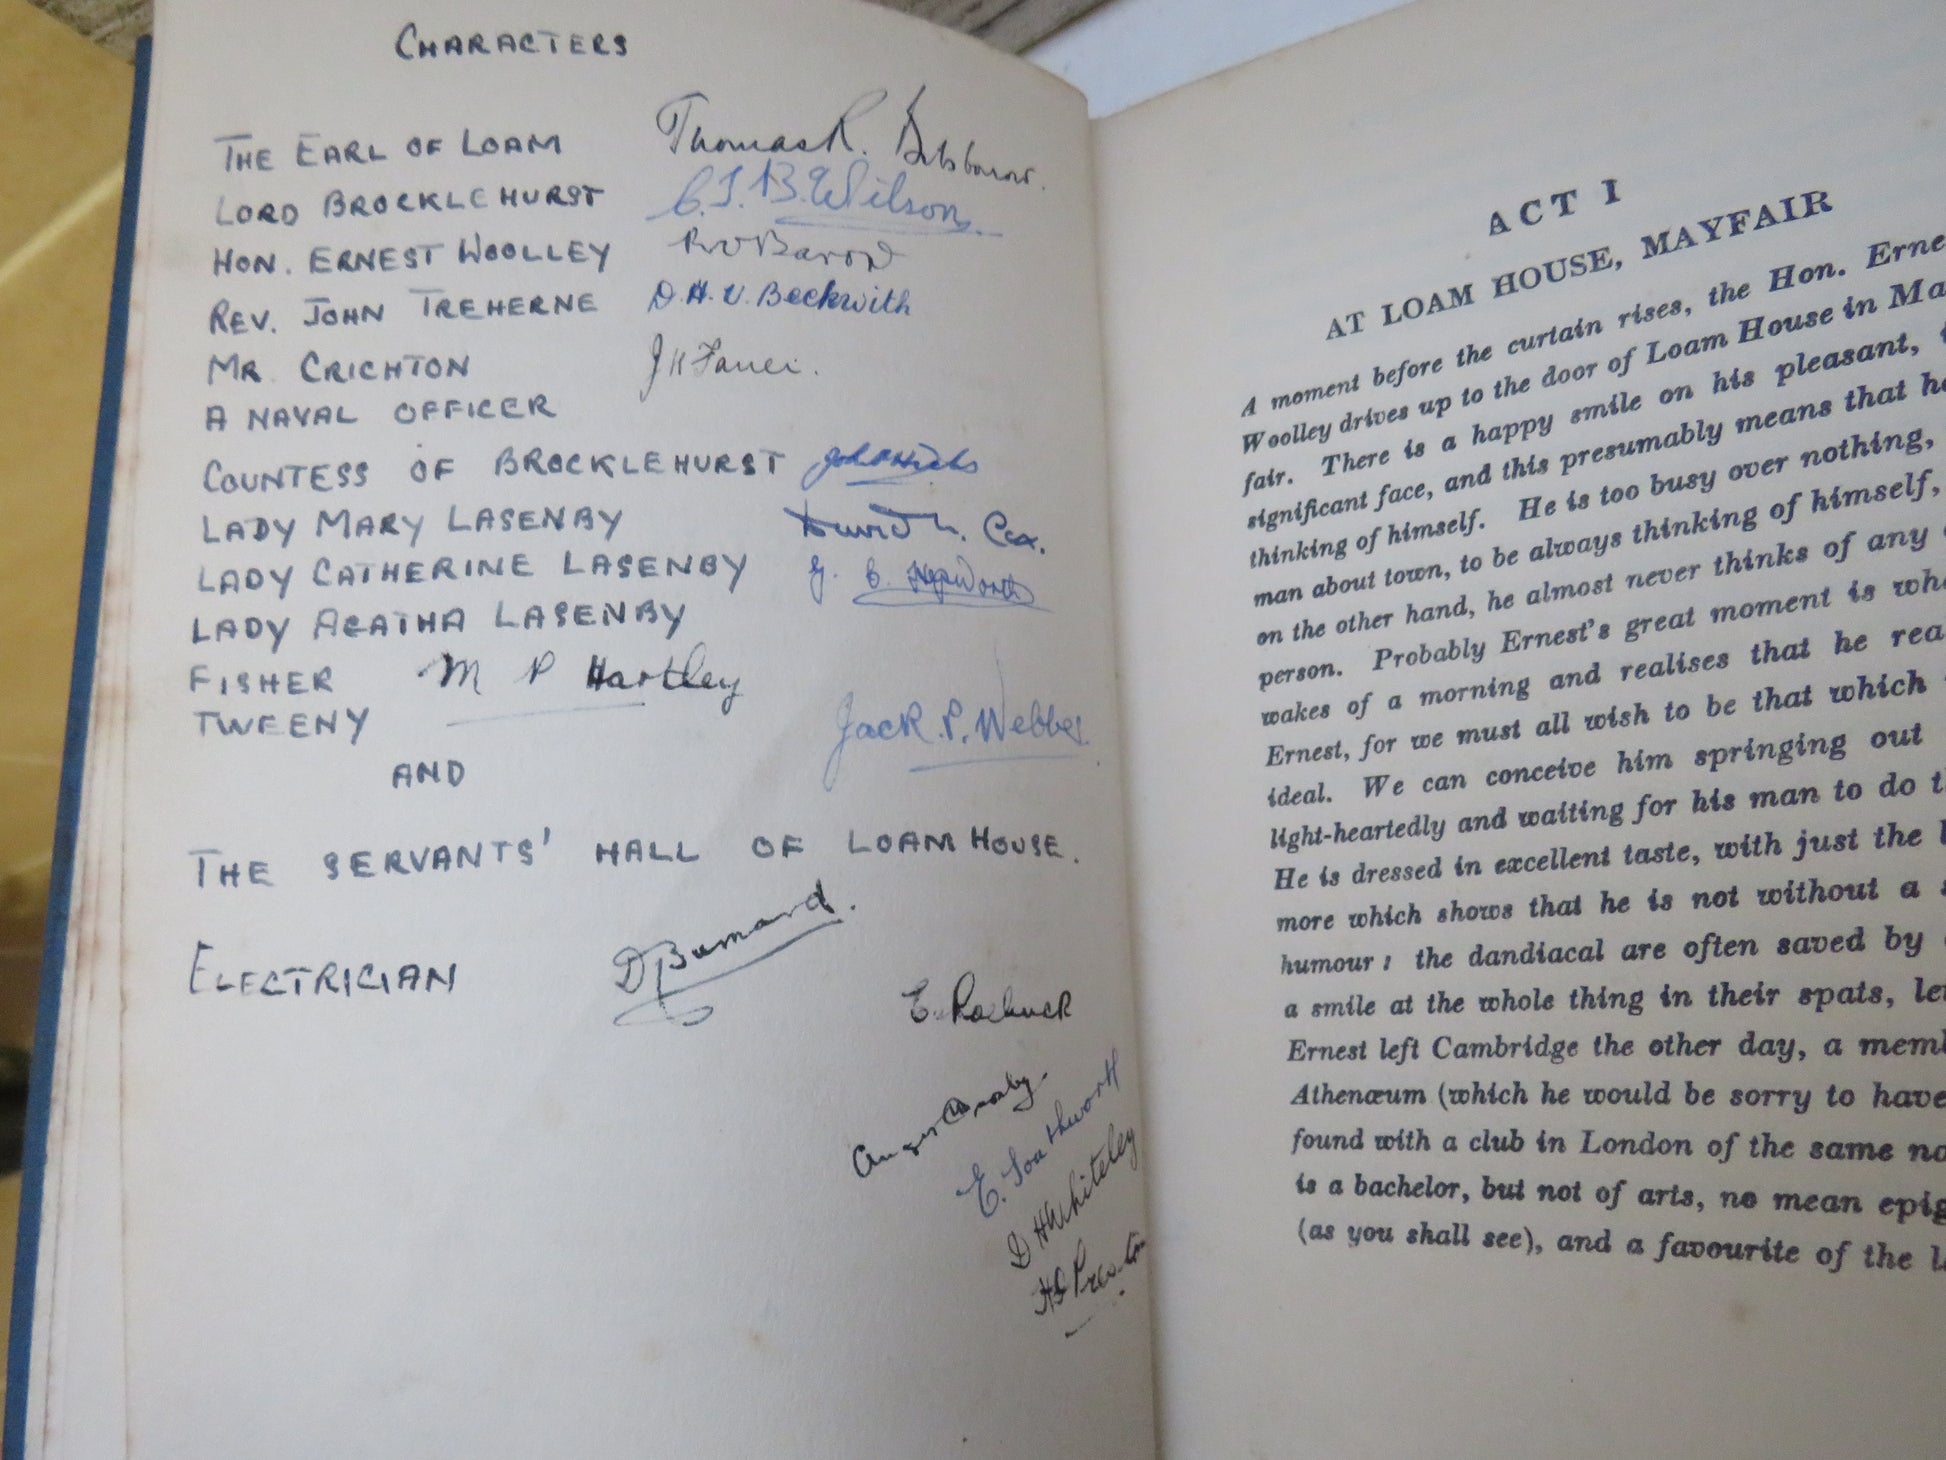 CHARACTERS
THE EARL OF LOAM Thomas R.
LORD BROCKLEHURST C.T.B. Wilson.
HON. ERNEST WOOLLEY R V Baron
REV. JOHN TREHERNE D. H. V. Beckwith
MR CRICHTON J H
A NAVAL OFFICER
COUNTESS OF BROCKLEHURST John Hicks
LADY MARY LASENBY David L. Cox.
LADY CATHERINE LASENBY G. B. Hepworth
LADY AGATHA LASENBY
FISHER M P Hartley
TWEENY Jack. P. Webber.
AND
THE SERVANTS' HALL OF LOAM HOUSE.
ELECTRICIAN D Barnard.
E. Roebuck
Crosby.
E. Southworth
D H Whiteley
H S Preston
ACT I
AT LOAM HOUSE, MAYFAIR
A moment before the curtain rises, the Hon. Erne
Woolley drives up to the door of Loam House in Ma
fair. There is a happy smile on his pleasant,
significant face, and this presumably means that he
thinking of himself. He is too busy over nothing,
man about town, to be always thinking of himself,
on the other hand, he almost never thinks of any
person. Probably Ernest's great moment is whe
wakes of a morning and realises that he rea
Ernest, for we must all wish to be that which
ideal. We can conceive him springing out
light-heartedly and waiting for his man to do t
He is dressed in excellent taste, with just the
more which shows that he is not without a s
humour : the dandiacal are often saved by
a smile at the whole thing in their spats, le
Ernest left Cambridge the other day, a mem
Athenæum (which he would be sorry to have
found with a club in London of the same na
is a bachelor, but not of arts, no mean epig
(as you shall see), and a favourite of the l